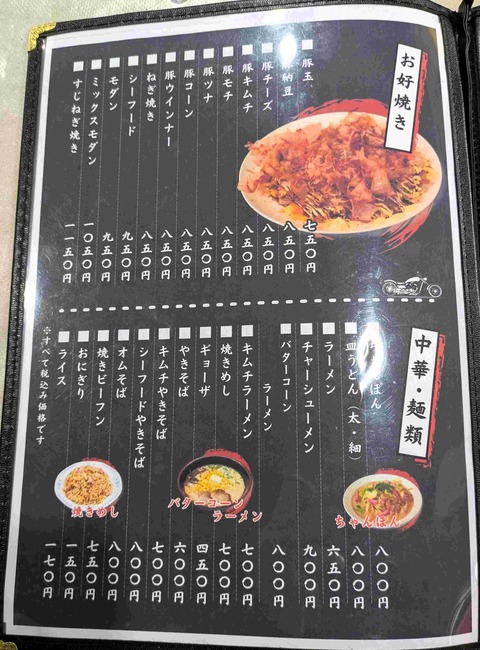 お好焼き
■豚玉 七五〇円
■豚納豆 八五〇円
■豚チーズ 八五〇円
■豚キムチ 八五〇円
■豚モチ 八五〇円
■豚ツナ 八五〇円
■豚コーン 八五〇円
■豚ウインナー 八五〇円
■ねぎ焼き 八五〇円
■シーフード 九五〇円
■モダン 九五〇円
■ミックスモダン 一〇五〇円
■すじねぎ焼き 一一五〇円
中華・麺類
■ちゃんぽん 八〇〇円
■皿うどん(太・細) 八〇〇円
■ラーメン 六五〇円
■チャーシューメン 九〇〇円
■バターコーン
ラーメン 八〇〇円
■キムチラーメン 七〇〇円
■焼きめし 七〇〇円
■ギョーザ 四五〇円
■やきそば 六〇〇円
■キムチやきそば 七〇〇円
■シーフードやきそば 八〇〇円
■オムそば 八〇〇円
■焼きビーフン 七五〇円
■おにぎり 一五〇円
■ライス 一七〇円
※すべて税込み価格です
ちゃんぽん
バターコーン
ラーメン
焼きめし